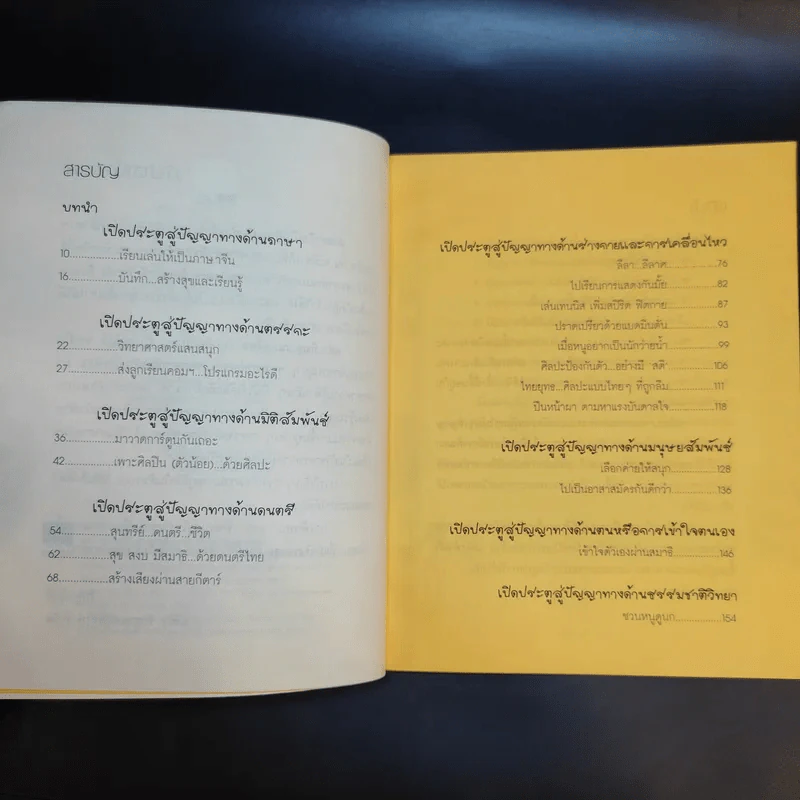 สารบัญ
บทนำ
เปิดประตูสู่ปัญญาทางด้านภาษา
10...............เรียนเล่นให้เป็นภาษาจีน
16...............บันทึก...สร้างสุขและเรียนรู้
เปิดประตูสู่ปัญญาทางด้านตรรกะ
22...............วิทยาศาสตร์แสนสนุก
27...............ส่งลูกเรียนคอมฯ...โปรแกรมอะไรดี
เปิดประตูสู่ปัญญาทางด้านมิติสัมพันธ์
36...............มาวาดการ์ตูนกันเถอะ
42...............เพาะศิลปิน (ตัวน้อย)...ด้วยศิลปะ
เปิดประตูสู่ปัญญาทางด้านดนตรี
54...............สุนทรีย์...ดนตรี...ชีวิต
62...............สุข สงบ มีสมาธิ...ด้วยดนตรีไทย
68...............สร้างเสียงผ่านสายกีตาร์
เปิดประตูสู่ปัญญาทางด้านร่างกายและการเคลื่อนไหว
ลีลา...ลีลาศ...............76
ไปเรียนการแสดงกันมั้ย...............82
เล่นเทนนิส เพิ่มสปิริต ฟิตกาย...............87
ปราดเปรียวด้วยแบดมินตัน...............93
เมื่อหนูอยากเป็นนักว่ายน้ำ...............99
ศิลปะป้องกันตัว...อย่างมี "สติ"...............106
ไทยยุทธ...ศิลปะแบบไทยๆ ที่ถูกลืม...............111
ปีนหน้าผา ตามหาแรงบันดาลใจ...............118
เปิดประตูสู่ปัญญาทางด้านมนุษยสัมพันธ์
เลือกค่ายให้สนุก...............128
ไปเป็นอาสาสมัครกันดีกว่า...............136
เปิดประตูสู่ปัญญาทางด้านตนหรือการเข้าใจตนเอง
เข้าใจตัวเองผ่านสมาธิ...............146
เปิดประตูสู่ปัญญาทางด้านธรรมชาติวิทยา
ชวนหนูดูนก...............154